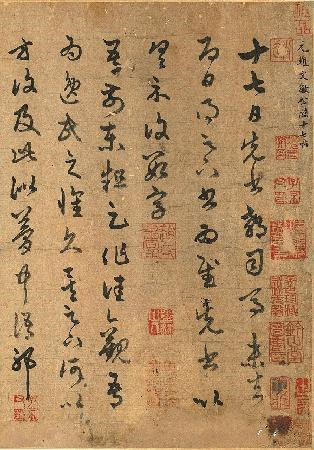 元趙文敏公臨十七帖
十七日先書郗司馬未去
即日得足下書為慰先書以
具示復數字
吾前東粗足作佳觀吾
為逸民之懷久矣足下何以
方復及此似夢中語耶